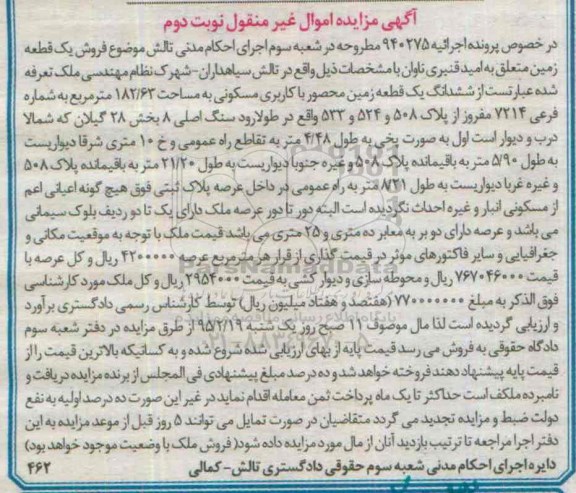 آگهی مزایده اموال غیر منقول نوبت دوم
در خصوص پرونده اجرائیه ۹۴۰۲۷۵ مطروحه در شعبه سوم اجرای احکام مدنی تالش موضوع فروش یک قطعه
زمین متعلق به امید قنبری ناوان با مشخصات ذیل واقع در تالش سیاهداران- شهرک نظام مهندسی ملک تعرفه
شده عبارتست از ششدانگ یک قطعه زمین محصور با کاربری مسکونی به مساحت ۱۸۲/۶۳ مترمربع به شماره
فرعی ۷۲۱۴ مفروز از پلاک ۵۰۸ و ۵۲۴ و ۵۳۳ واقع در طولارود سنگ اصلی ۸ بخش ۲۸ گیلان که شمالا
درب و دیوار است اول به صورت پخی به طول ۴/۴۸ متر به تقاطع راه عمومی و خ ۱۰ متری شرقا دیواریست
به طول ۵/۹۰ متر به باقیمانده پلاک ۵۰۸ و غیره جنوبا دیواریست به طول ۲۱/۲۰ متر به باقیمانده پلاک ۵۰۸
و غیره غربا دیواریست به طول ۸۲۱ متر به راه عمومی در داخل عرصه پلاک ثبتی فوق هیچ گونه اعیانی اعم
از مسکونی انبار و غیره احداث نگردیده است البته دور تا دور عرصه ملک دارای یک تا دو ردیف بلوک سیمانی
می باشد و عرصه دارای دو بر به معابر ده متری و ۲۵ متری می باشد قیمت ملک با توجه به موقعیت مکانی و
جغرافیایی و سایر فاکتورهای موثر در قیمت گذاری از قرار هر مترمربع عرصه ۴۲۰۰۰۰۰ ریال و کل عرصه با
قیمت ۷۶۷۰۴۶۰۰۰ ریال و محوطه سازی و دیوار کشی به قیمت ۲۹۵۴۰۰۰ ریال و کل ملک مورد کارشناسی
فوق الذکر به مبلغ ۷۷۰۰۰۰۰۰۰ (هفتصد و هفتاد میلیون ریال) توسط کارشناس رسمی دادگستری برآورد
و ارزیابی گردیده است لذا مال موصوف ۱۱ صبح روز یک شنبه ۹۵/۲/۱۹ از طرق مزایده در دفتر شعبه سوم
دادگاه حقوقی به فروش می رسد قیمت پایه از بهای ارزیابی شده شروع شده و به کسانیکه بالاترین قیمت را از
قیمت پایه پیشنهاد دهند فروخته خواهد شد و ده درصد مبلغ پیشنهادی فی المجلس از برنده مزایده دریافت و
نامبرده ملکف است حداکثر تا یک ماه پرداخت ثمن معامله اقدام نماید در غیر این صورت ده درصد اولیه به نفع
دولت ضبط و مزایده تجدید می گردد متقاضیان در صورت تمایل می توانند ۵ روز قبل از موعد مزایده به این
دفتر اجرا مراجعه تا ترتیب بازدید آنان از مال مورد مزایده داده شود( فروش ملک با وضعیت موجود خواهد بود)
دایره اجرای احکام مدنی شعبه سوم حقوقی دادگستری تالش- کمالی
۴۶۲
ParsNamadData